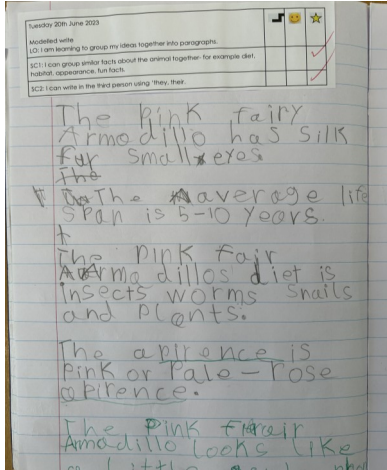 Tuesday 20th June 2023
Modelled write
LO: I am learning to group my ideas together into paragraphs.
SC1: I can group similar facts about the animal together- for example diet,
habitat, appearance, fun facts.
SC2: I can write in the third person using 'they, their.
The Pink fairy
Armodillo has Silk
fur small eyes.
The
The average life
Span is 5-10 years.
The pink fair
Armadillos diet is
insects worms snails
and plants.
The apirence is
Pink or Pale-rose
apirence.
The Pink
Armadillo looks like
a little